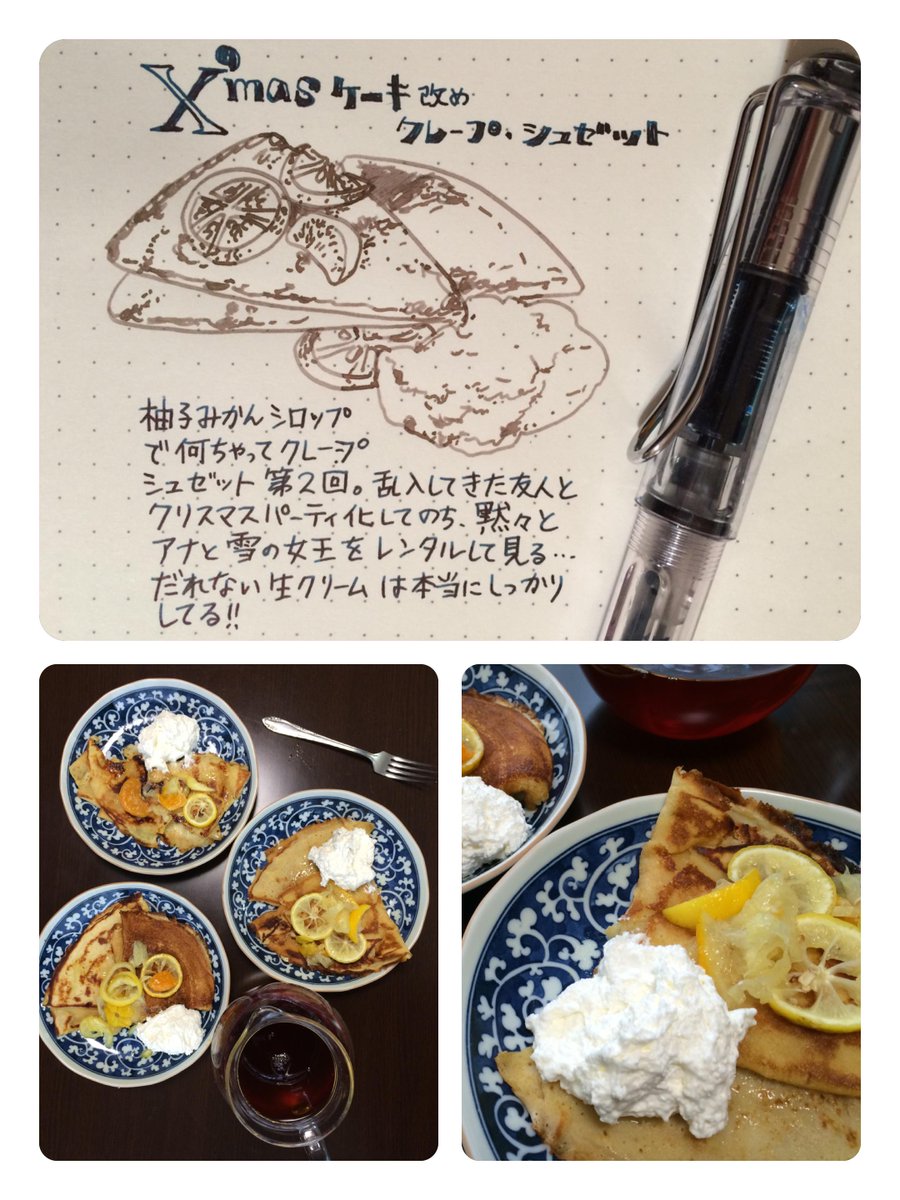 X'mas ケーキ改め
クレープ、シュゼット
柚子みかんシロップ
で何ちゃってクレープ
シュゼット第2回。乱入してきた友人と
クリスマスパーティ化してのち、黙々と
アナと雪の女王をレンタルして見る…
だれない生クリームは本当にしっかり
してる!!